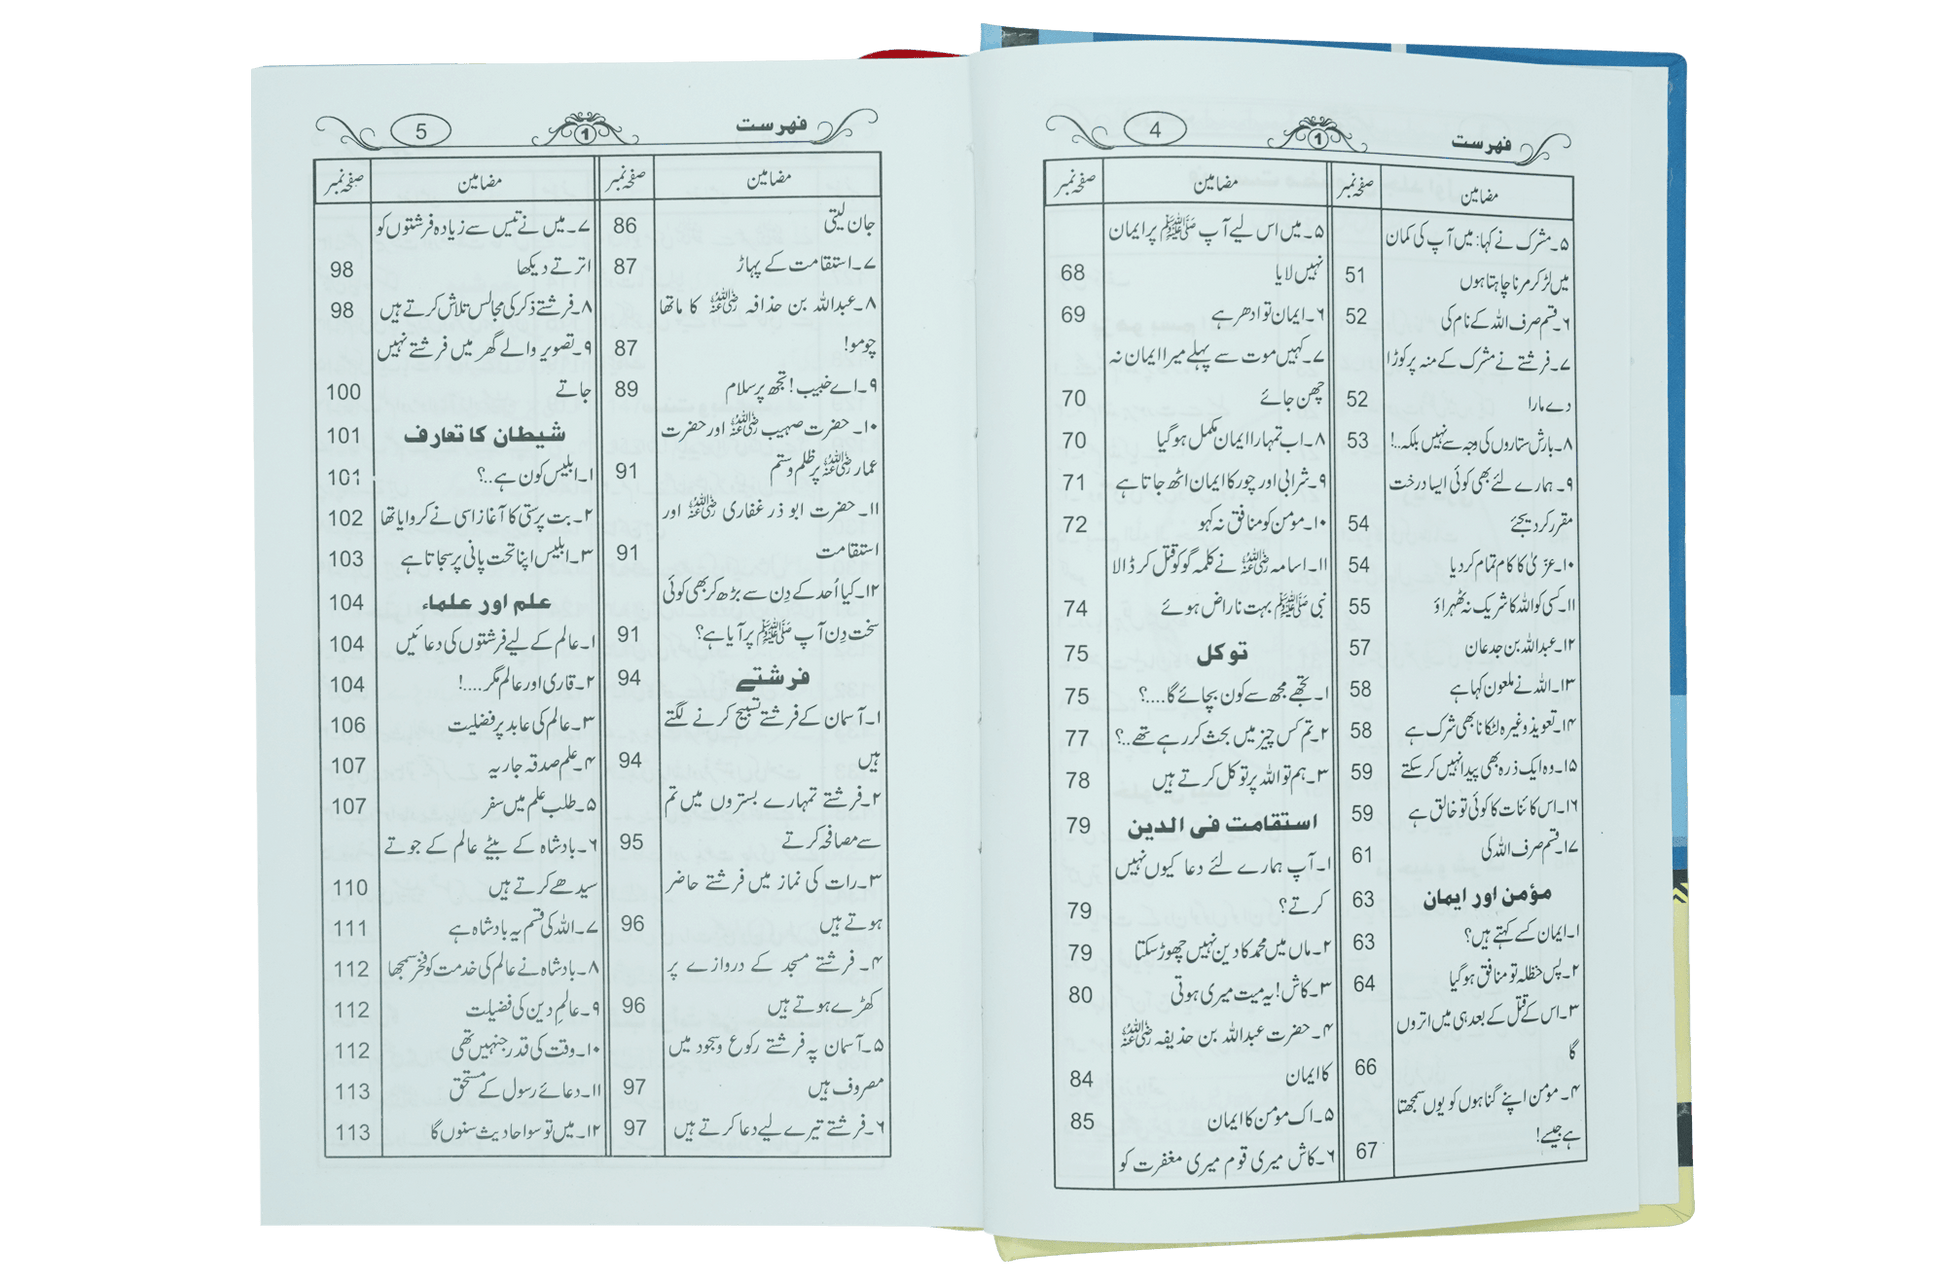 فہرست
1
4
مضامین
صفحہ نمبر
مضامین
صفحہ نمبر
۵۔ مشرک نے کہا: میں آپ کی کمان
میں لڑ کر مرنا چاہتا ہوں 51
۶۔ قسم صرف اللہ کے نام کی 52
۷۔ فرشتے نے مشرک کے منہ پر کوڑا
دے مارا 52
۸۔ بارش ستاروں کی وجہ سے نہیں بلکہ..! 53
۹۔ ہمارے لئے بھی کوئی ایسا درخت
مقرر کر دیجئے 54
۱۰۔ عزیٰ کا کام تمام کر دیا 54
۱۱۔ کسی کو اللہ کا شریک نہ ٹھہراؤ 55
۱۲۔ عبداللہ بن جدعان 57
۱۳۔ اللہ نے ملعون کہا ہے 58
۱۴۔ تعویذ وغیرہ لٹکانا بھی شرک ہے 58
۱۵۔ وہ ایک ذرہ بھی پیدا نہیں کر سکتے 59
۱۶۔ اس کائنات کا کوئی تو خالق ہے 59
۱۷۔ قسم صرف اللہ کی 61
مؤمن اور ایمان 63
۱۔ ایمان کسے کہتے ہیں؟ 63
۲۔ پس حنظلہ تو منافق ہو گیا 64
۳۔ اس کے قتل کے بعد ہی میں اتروں
گا 66
۴۔ مومن اپنے گناہوں کو یوں سمجھتا
ہے جیسے! 67
۵۔ میں اس لیے آپ ﷺ پر ایمان
نہیں لایا 68
۶۔ ایمان تو ادھر ہے 69
۷۔ کہیں موت سے پہلے میرا ایمان نہ
چھن جائے 70
۸۔ اب تمہارا ایمان مکمل ہو گیا 70
۹۔ شرابی اور چور کا ایمان اٹھ جاتا ہے 71
۱۰۔ مومن کو منافق نہ کہو 72
۱۱۔ اسامہ رضی اللہ عنہ نے کلمہ گو کو قتل کر ڈالا
نبی ﷺ بہت ناراض ہوئے 74
توکل 75
۱۔ تجھے مجھ سے کون بچائے گا....؟ 75
۲۔ تم کس چیز میں بحث کر رہے تھے..؟ 77
۳۔ ہم تو اللہ پر توکل کرتے ہیں 78
استقامت فی الدین 79
۱۔ آپ ہمارے لئے دعا کیوں نہیں
کرتے؟ 79
۲۔ ماں میں محمد کا دین نہیں چھوڑ سکتا 79
۳۔ کاش! یہ میت میری ہوتی 80
۴۔ حضرت عبداللہ بن حذیفہ رضی اللہ عنہ
کا ایمان 84
۵۔ اک مومن کا ایمان 85
۶۔ کاش میری قوم میری مغفرت کو
فہرست
1
5
مضامین
صفحہ نمبر
مضامین
صفحہ نمبر
جان لیتی 86
۷۔ استقامت کے پہاڑ 87
۸۔ عبداللہ بن حذافہ رضی اللہ عنہ کا ماتھا
چومو! 87
۹۔ اے خبیب! تجھ پر سلام 89
۱۰۔ حضرت صہیب رضی اللہ عنہ اور حضرت
عمار رضی اللہ عنہ پر ظلم و ستم 91
۱۱۔ حضرت ابو ذر غفاری رضی اللہ عنہ اور
استقامت 91
۱۲۔ کیا اُحد کے دِن سے بڑھ کر بھی کوئی
سخت دِن آپ ﷺ پر آیا ہے؟ 91
فرشتے 94
۱۔ آسمان کے فرشتے تسبیح کرنے لگتے
ہیں 94
۲۔ فرشتے تمہارے بستروں میں تم
سے مصافحہ کرتے 95
۳۔ رات کی نماز میں فرشتے حاضر
ہوتے ہیں 96
۴۔ فرشتے مسجد کے دروازے پر
کھڑے ہوتے ہیں 96
۵۔ آسمان پہ فرشتے رکوع و سجود میں
مصروف ہیں 97
۶۔ فرشتے تیرے لیے دعا کرتے ہیں 97
۷۔ میں نے تیس سے زیادہ فرشتوں کو
اترتے دیکھا 98
۸۔ فرشتے ذکر کی مجالس تلاش کرتے ہیں 98
۹۔ تصویر والے گھر میں فرشتے نہیں
جاتے 100
شیطان کا تعارف 101
۱۔ ابلیس کون ہے..؟ 101
۲۔ بت پرستی کا آغاز اسی نے کروایا تھا 102
۳۔ ابلیس اپنا تخت پانی پر سجاتا ہے 103
علم اور علماء 104
۱۔ عالم کے لیے فرشتوں کی دعائیں 104
۲۔ قاری اور عالم مگر....! 104
۳۔ عالم کی عابد پر فضلیت 106
۴۔ علم صدقہ جاریہ 107
۵۔ طلب علم میں سفر 107
۶۔ بادشاہ کے بیٹے عالم کے جوتے
سیدھے کرتے ہیں 110
۷۔ اللہ کی قسم یہ بادشاہ ہے 111
۸۔ بادشاہ نے عالم کی خدمت کو فخر سمجھا 112
۹۔ عالمِ دین کی فضیلت 112
۱۰۔ وقت کی قدر جنہیں تھی 112
۱۱۔ دعائے رسول کے مستحق 113
۱۲۔ میں تو سوا حادیث سنوں گا 113